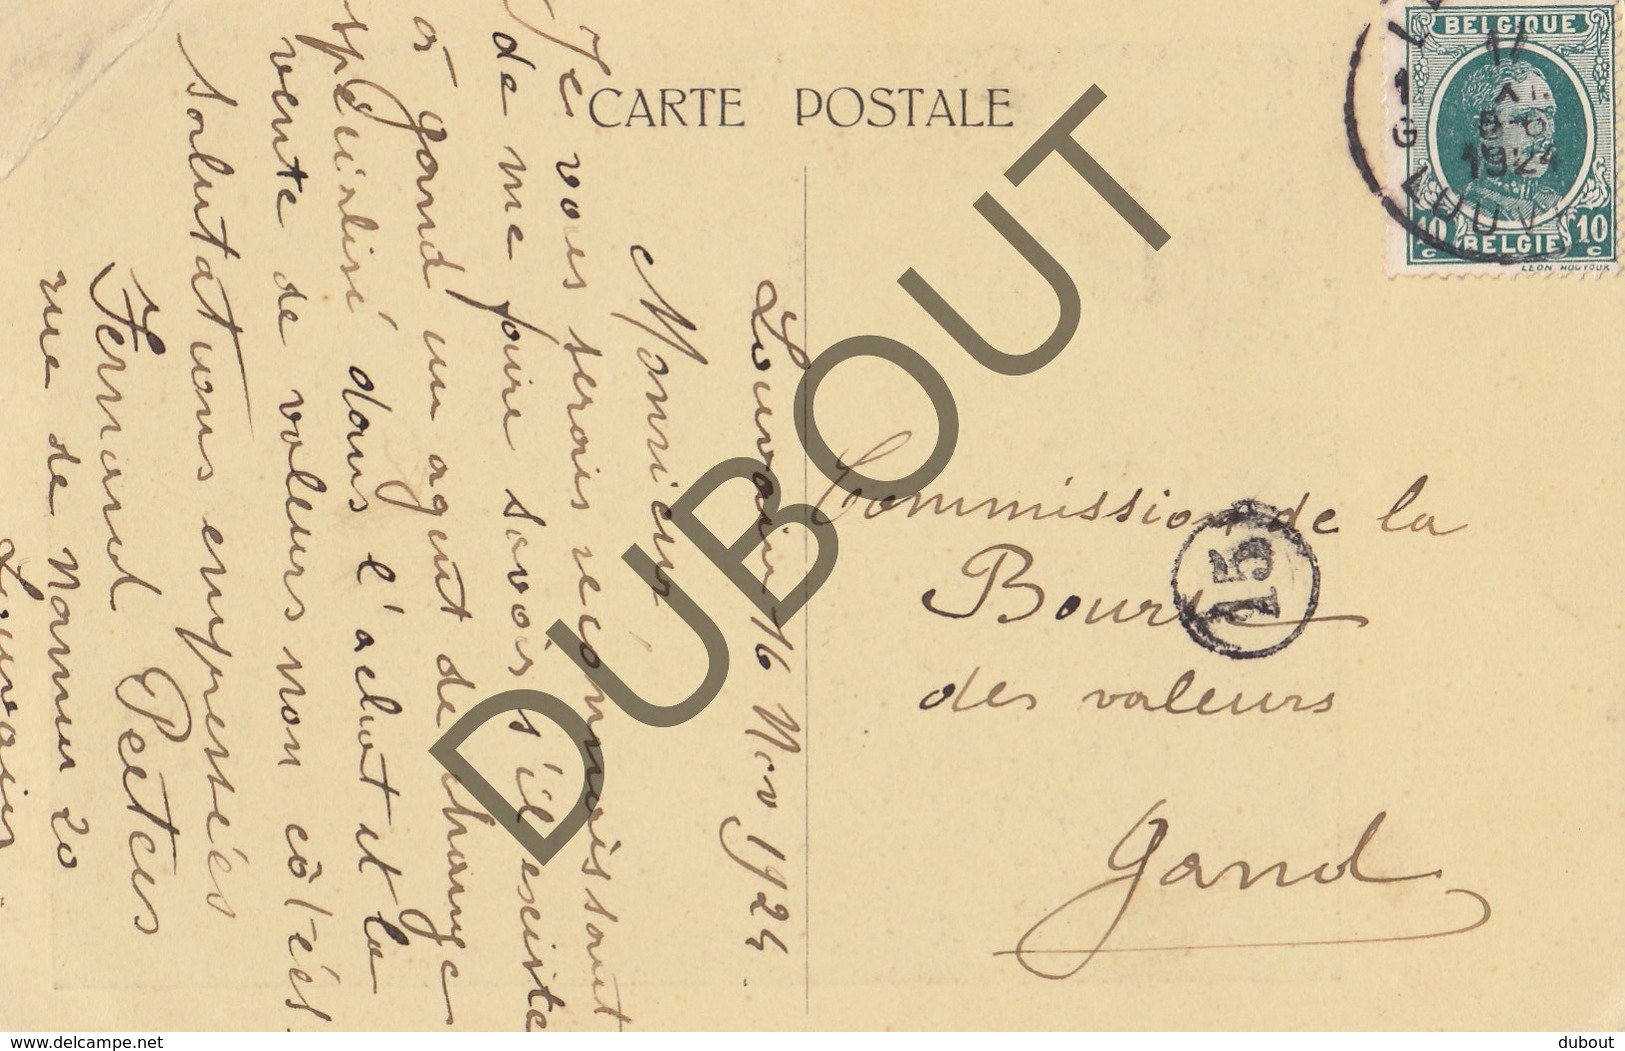 CARTE POSTALE
Louvain 16 Nov 1924.
Monsieur
Je vous serais reconnaissant
de me faire savoir s'il existe
à gand un agent de change
spécialisé dans l'achat et la
vente de valeurs non côtées.
Salutations empressées
Fernand Peeters
rue de Namur 20
Louvain
Commission de la
Bourse
des valeurs
Gand
15
BELGIQUE
11
1924
LOUV
10 c BELGIE 10 c
DUBOUT
www.delcampe.net
dubout